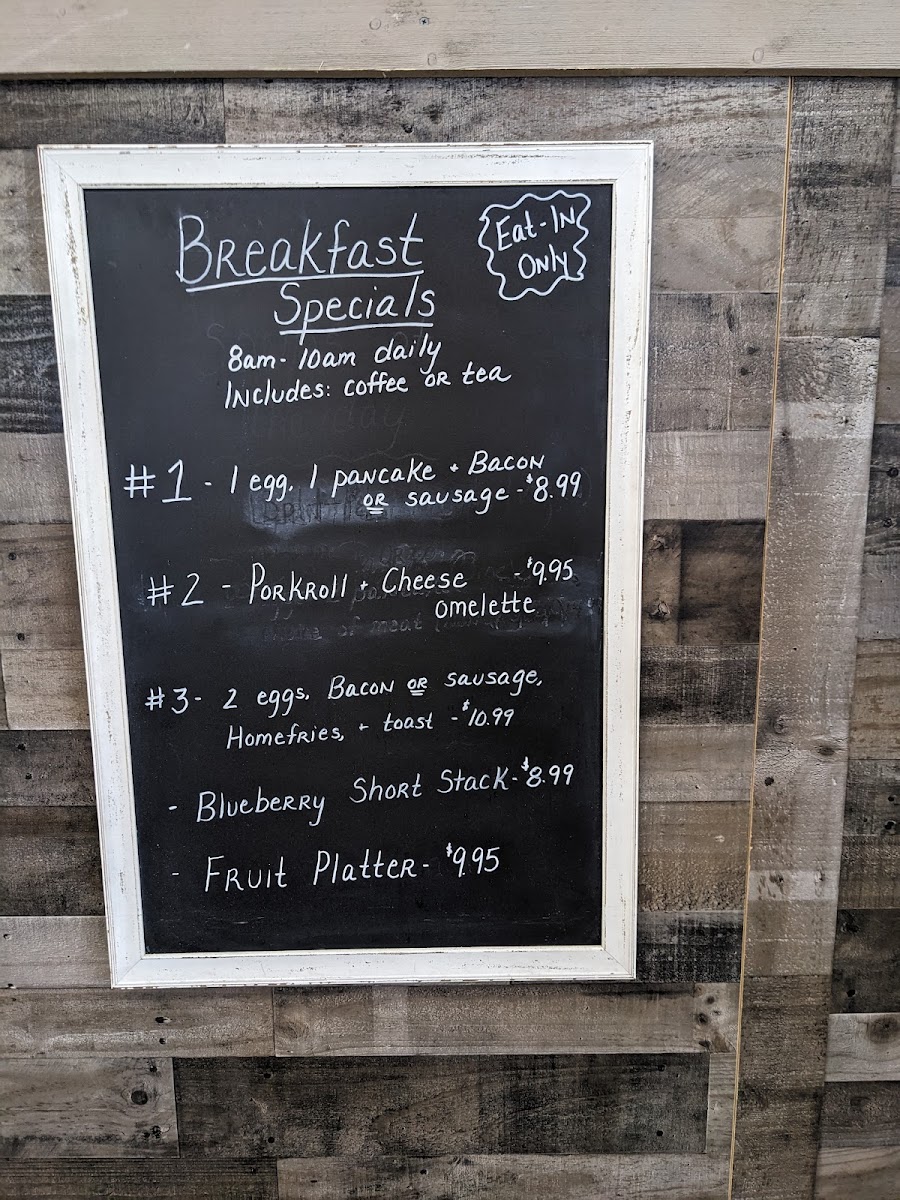 Breakfast
Specials
Eat-In
Only
8am- 10am daily
Includes: coffee or tea
#1 - 1 egg, 1 pancake + Bacon
or sausage - $8.99
#2 - Porkroll + Cheese - $9.95
omelette
#3- 2 eggs, Bacon or sausage,
Homefries, + toast - $10.99
- Blueberry Short Stack- $8.99
- Fruit Platter- $9.95